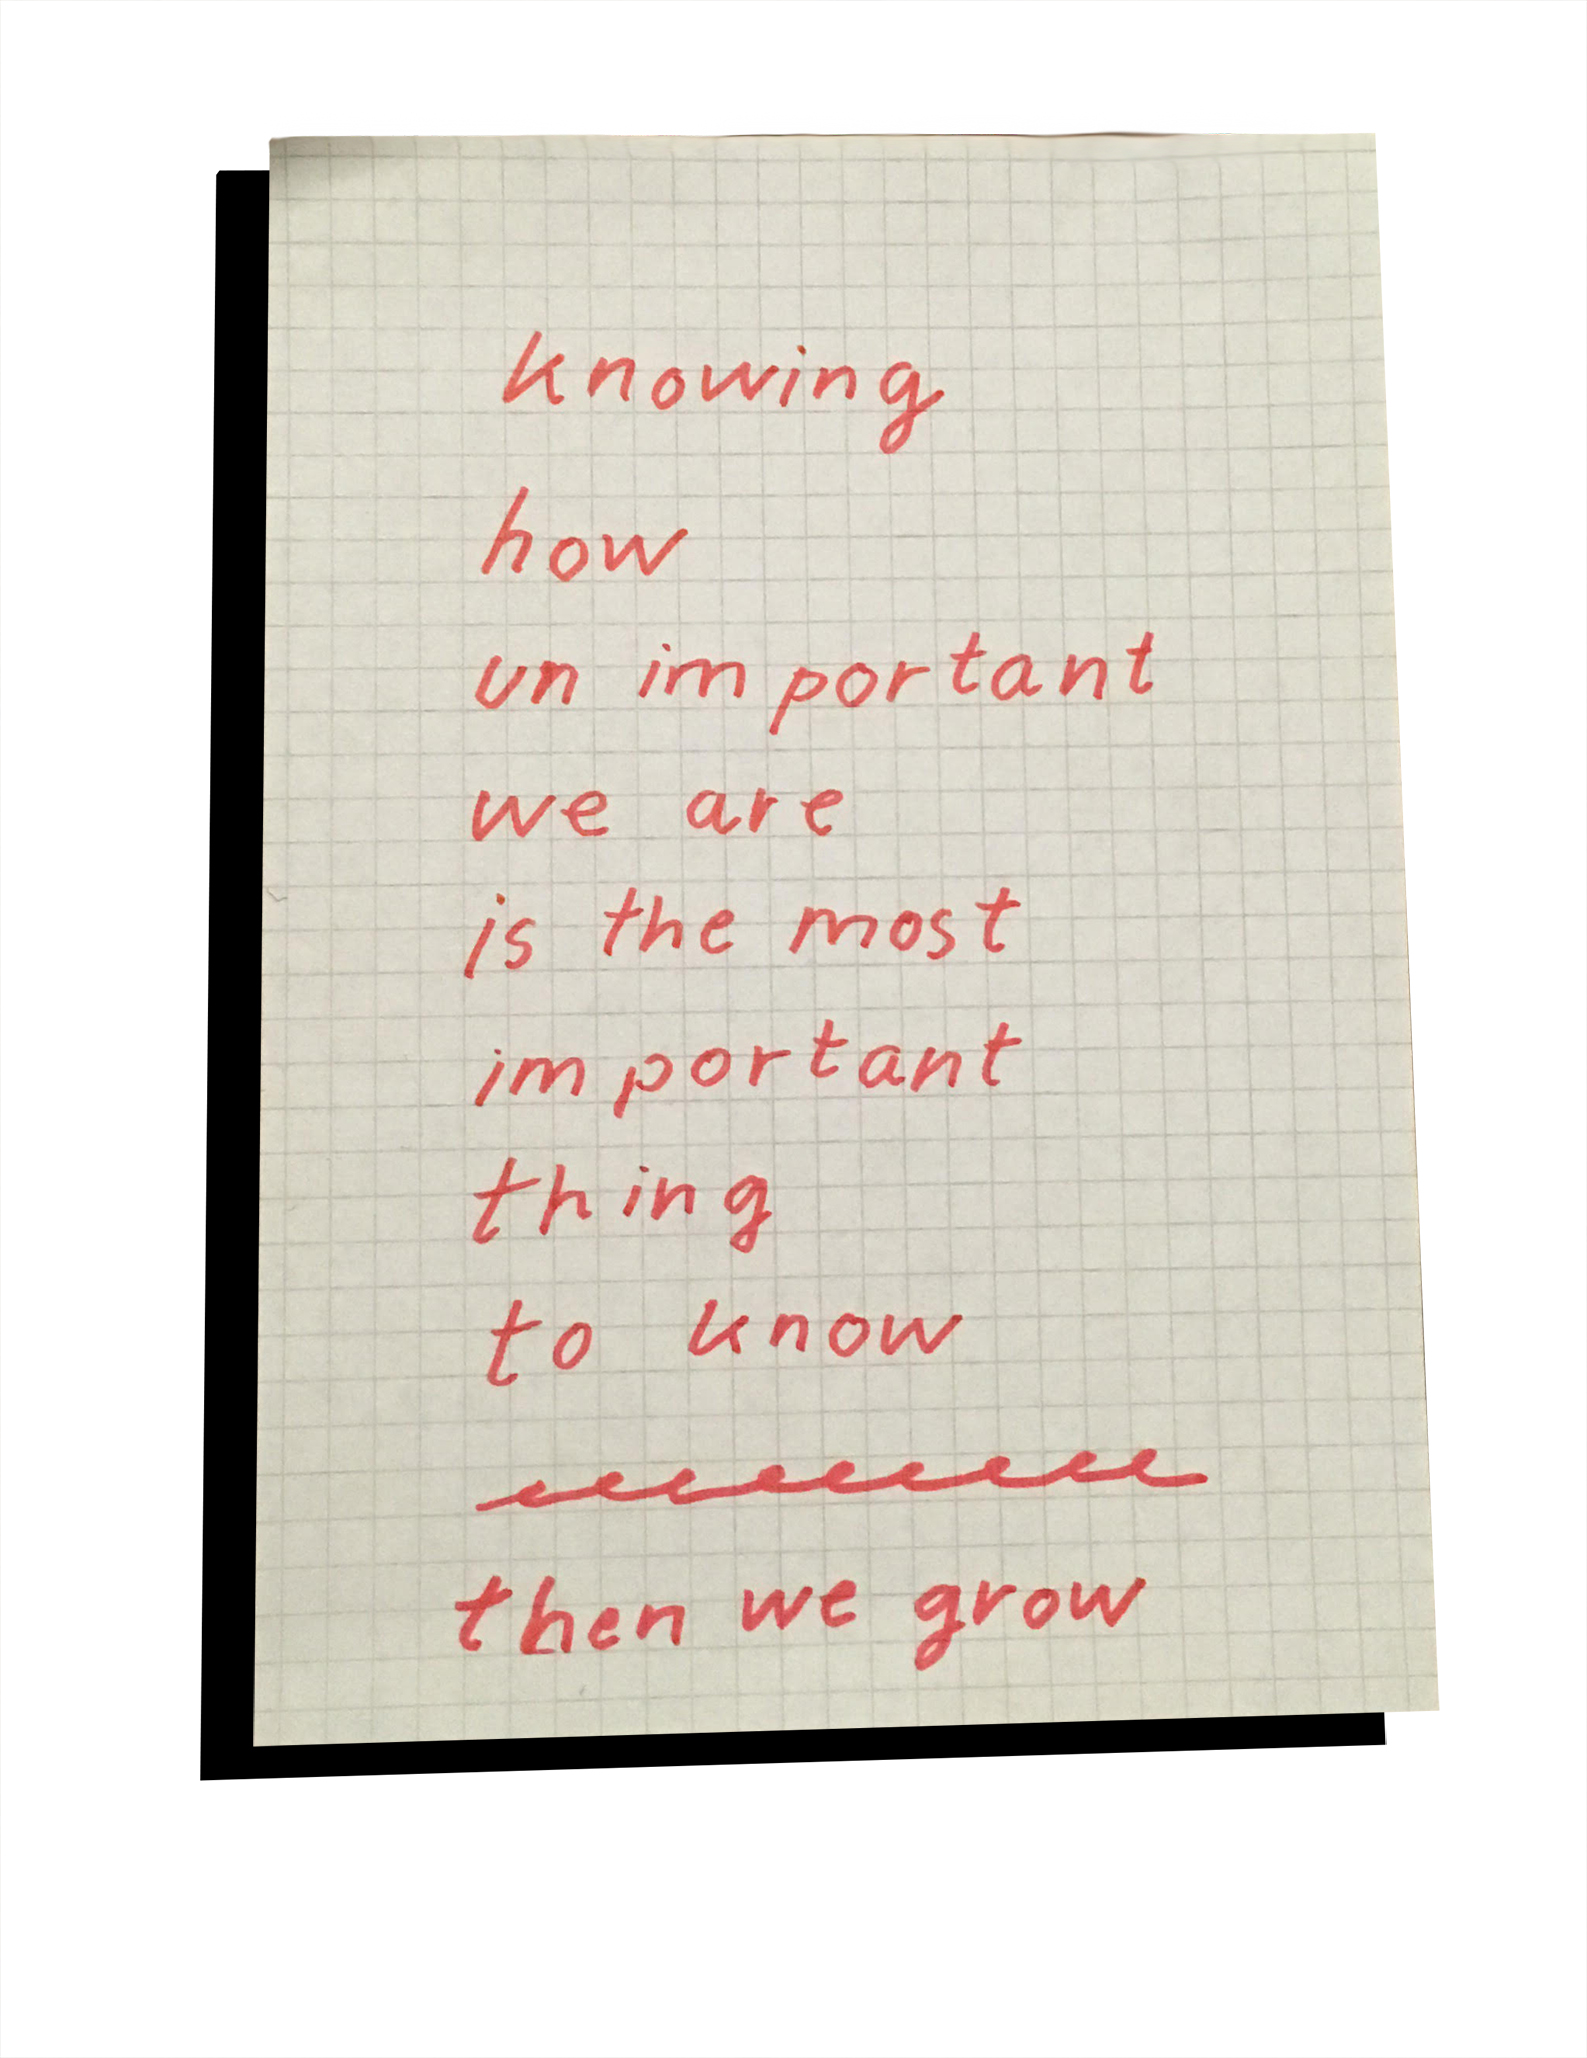 knowing
how
un important
we are
is the most
important
thing
to know
then we grow